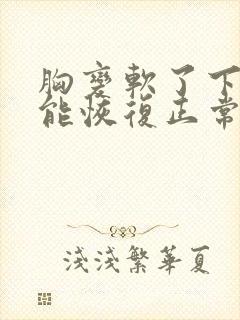 胸变軟了下
能恢復正常
淺淺繁華夏